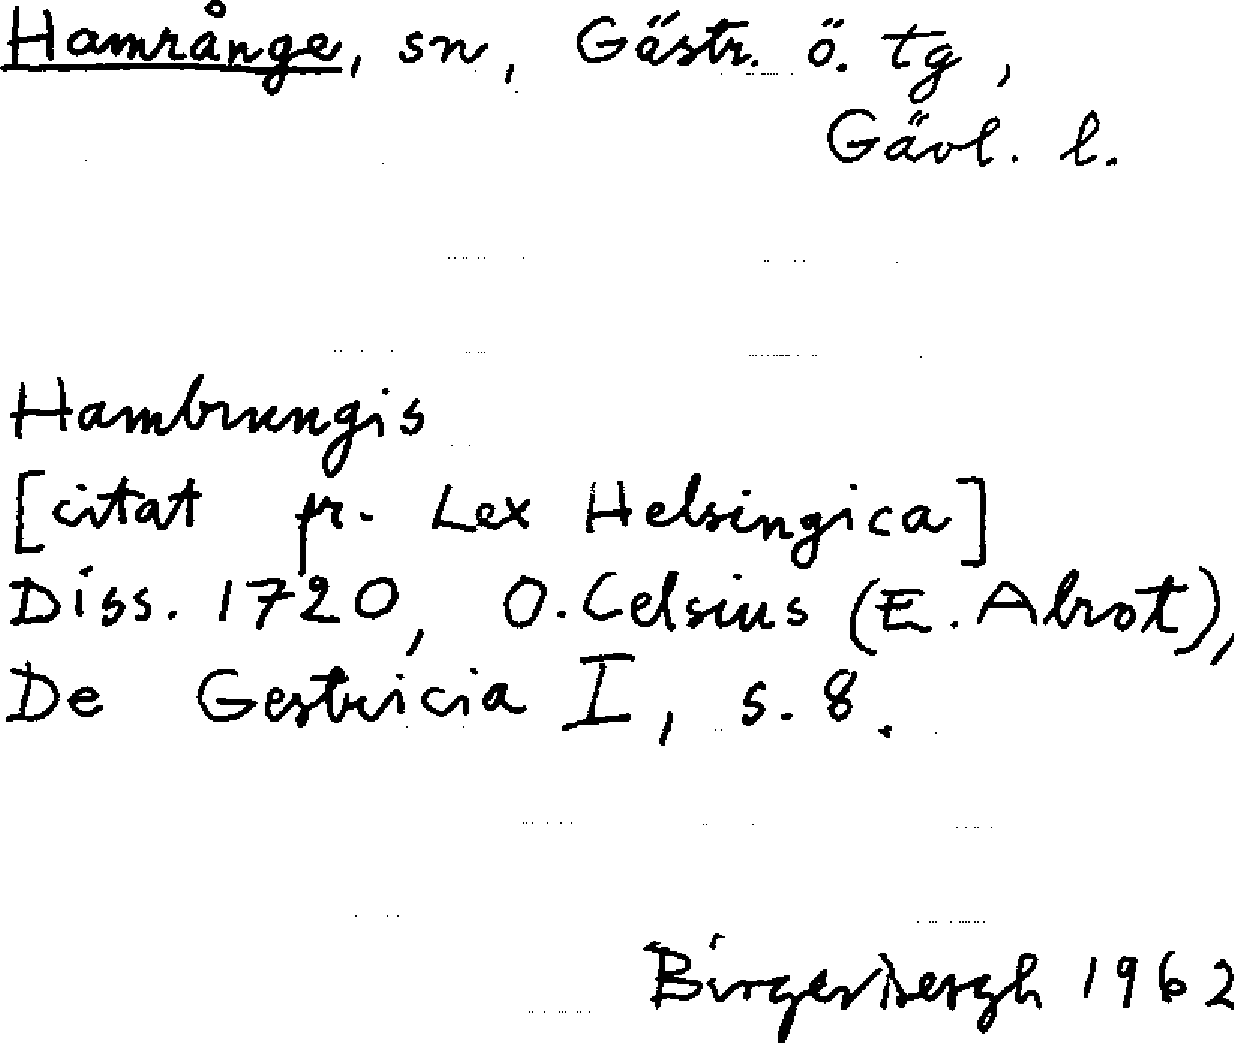 Hamrånge, sn, Gästr. ö. tg,
Gävl. l.
Hambrungis
[citat fr. Lex Helsingica]
Diss. 1720, O. Celsius (E. Abrot),
De Gestricia I, s. 8.
Birger Bergh 1962